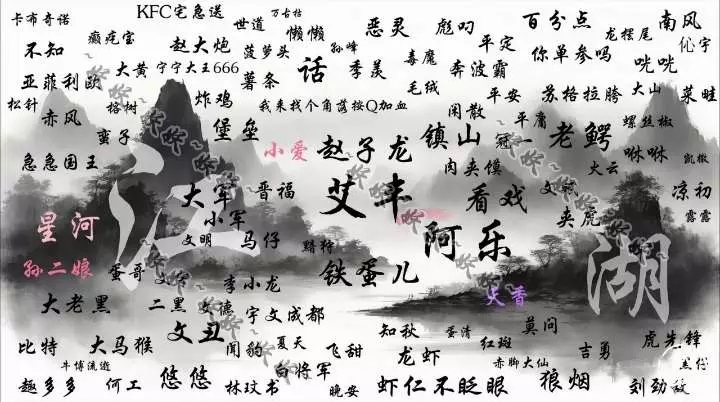 卡布奇诺
KFC宅急送
世道
万古枯
懒懒
恶灵
彪叼
百分点
龙摆尾
南风
不知
癫疙宝
赵大炮
菠萝头
孙峰
毒魔
平定
你单参吗
亚菲利欧
大黄
宁宁大王666
话
季羡
奔波霸
咣咣
薯条
毛绒
平安
苏格拉胯
大山
菜畦
松针
榕树
炸鸡
我来找个角落按Q加血
闲散
赤风
蛮子
堡垒
小爱
赵子龙
镇山
冠一
平庸
老鳄
螺丝椒
咻咻
凯撒
急急国王
肉夹馍
大云
大军
晋福
艾丰
看戏
夹虎
凉初
露露
小军
星河
江
文明
马仔
阿乐
湖
孙二娘
蛋哥
李小龙
铁蛋儿
大香
大老黑
二黑
文德
宇文成都
文丑
知秋
蛋清
莫问
虎先锋
比特
大马猴
闻豹
夏天
飞甜
龙虾
红斑
吉勇
牛博流逝
白将军
赤脚大仙
趣多多
何工
悠悠
林玟书
晚安
虾仁不眨眼
狼烟